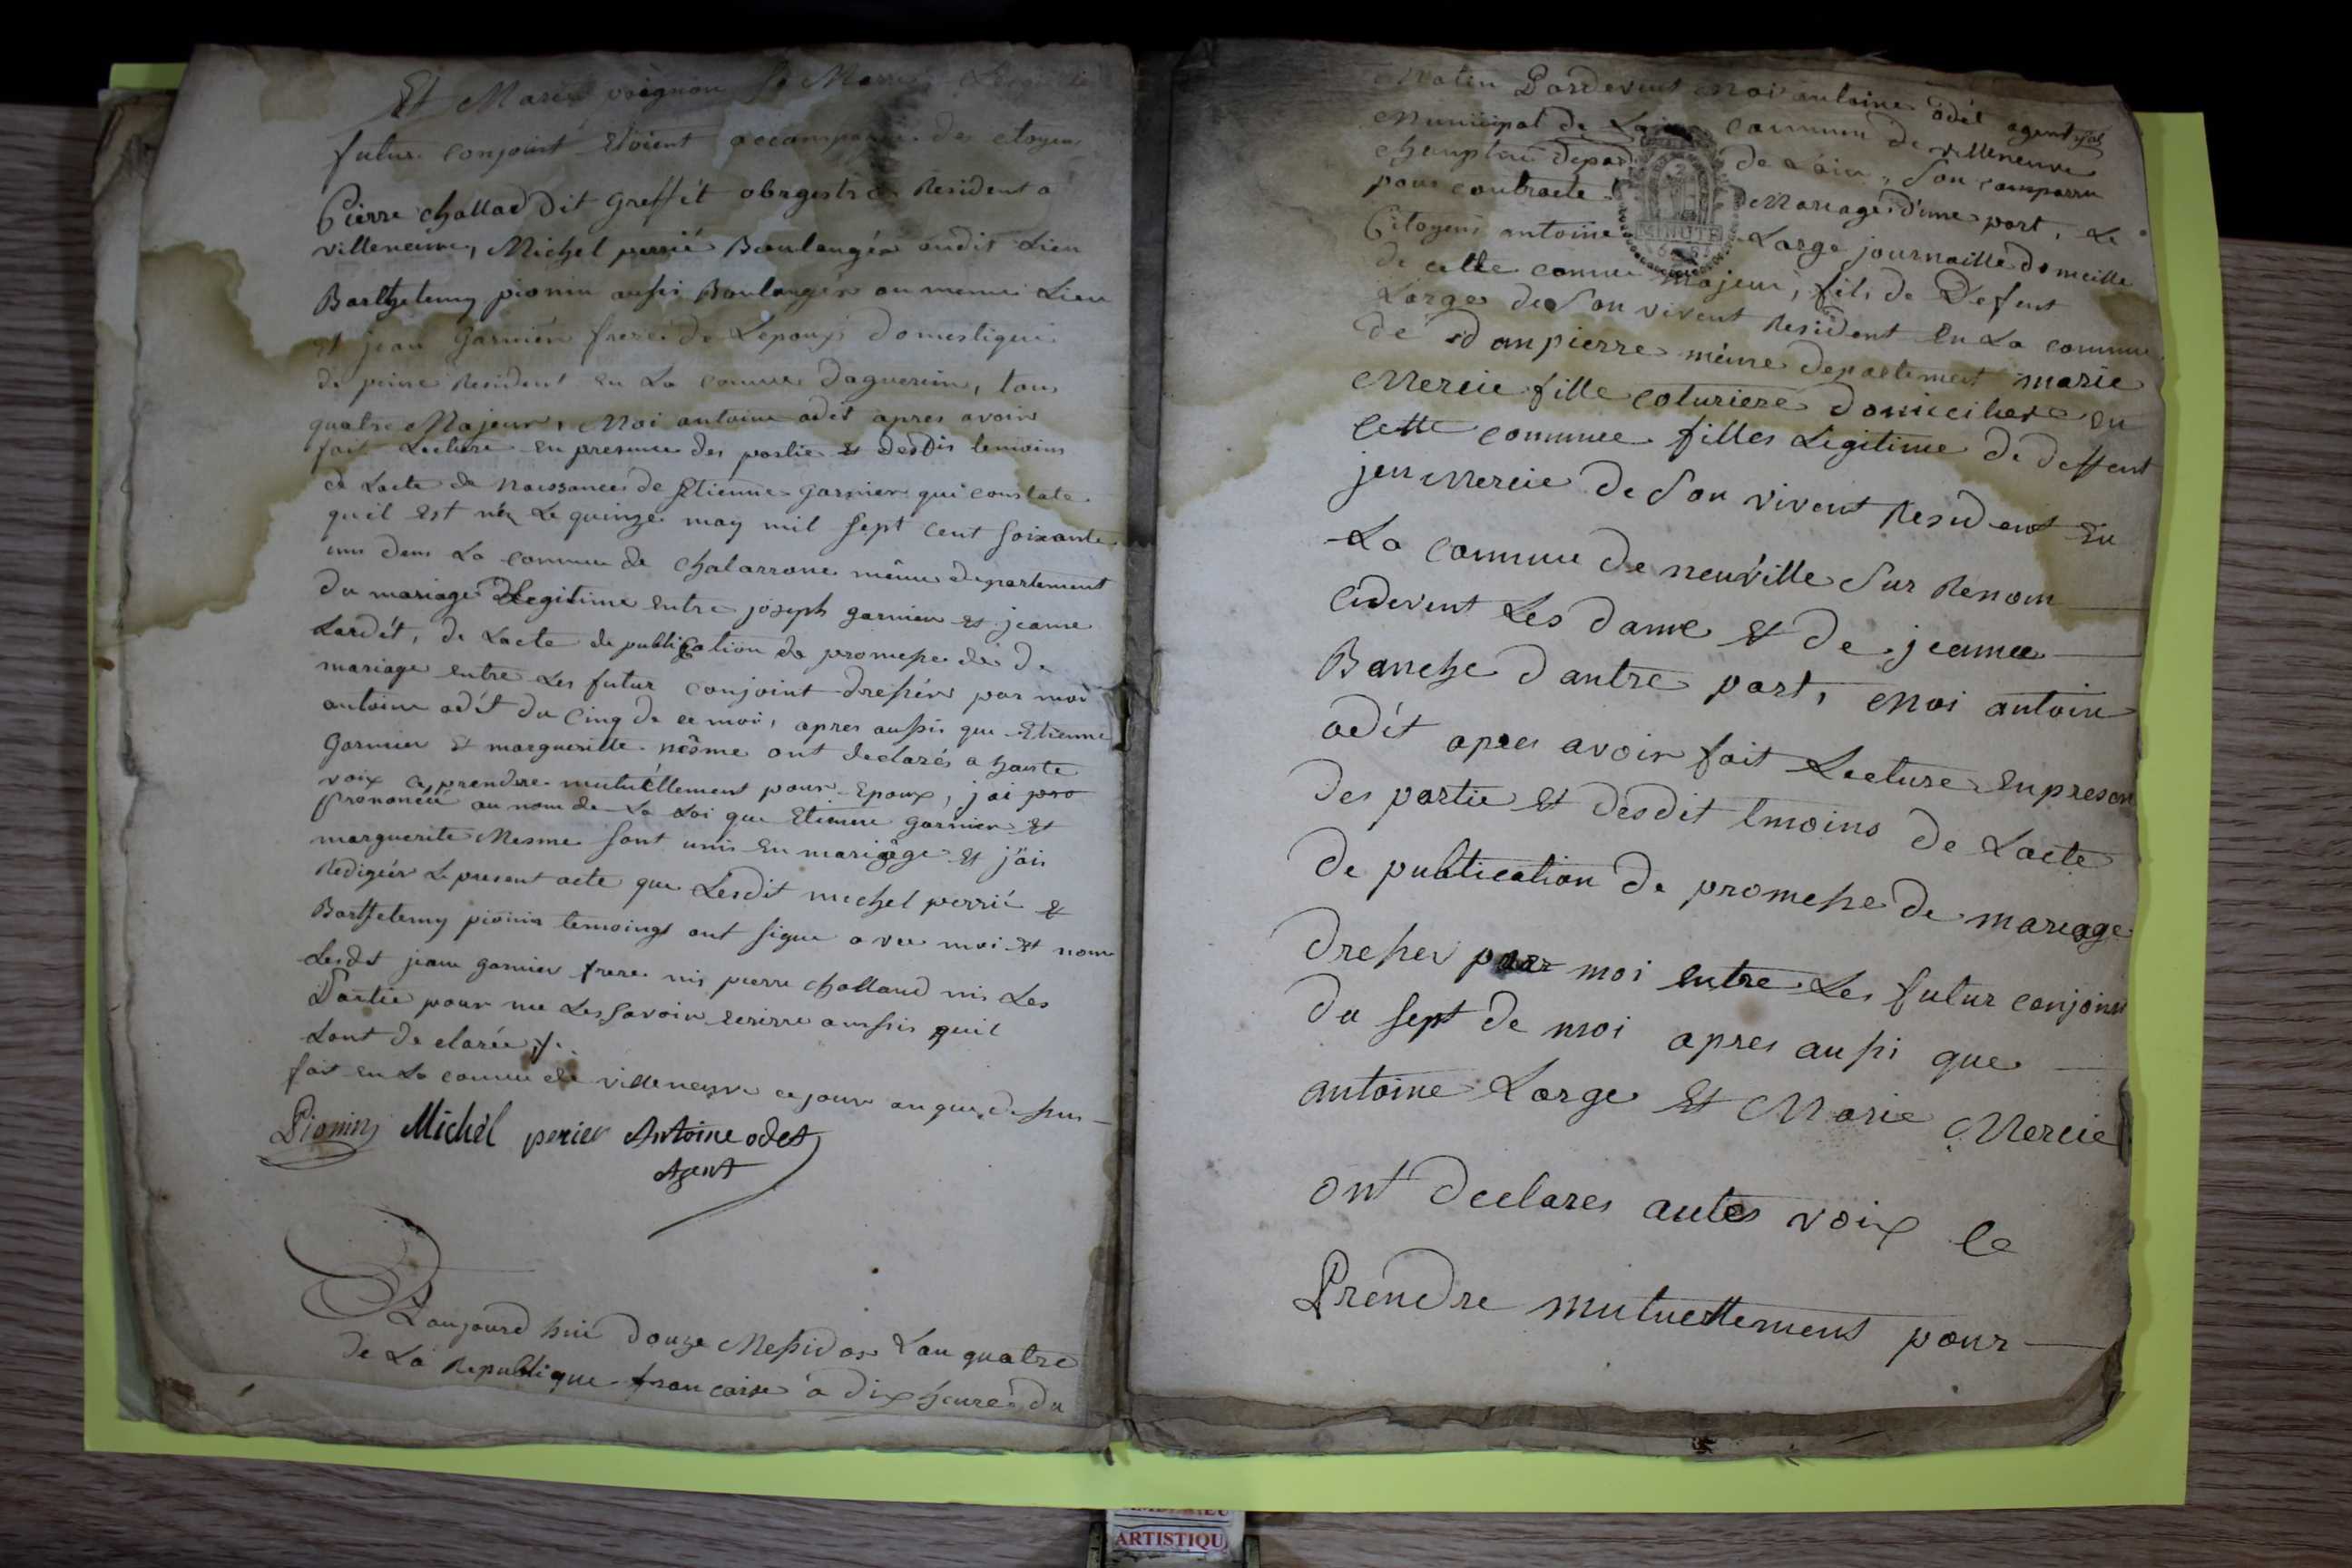 Et Marie voignon
futur conjoint Etoient accompagné des citoyens
Pierre challad Dit Greffét obagestre Resident a
villeneuve, Michel perrié Boulangér audit Lieu
Barthelemy pionin aussi Boulanger au meme Lieu
Et jean Garniér frere de Lepoux Domestique
de peine Resident en La comune daguerein, tous
quatre Majeur, Moi antoine odét apres avoir
fait Lecture En presence des partie & desdis temoins
de Lacte de Naissance de Etienne garnier qui constate
quil Est néz Le quinze may mil sept cent soixante
un dans La commune de chalarrone même departement
du mariage Legitime Entre joseph garnier et jeanne
Lardét, de Lacte de publication de promesse de
mariage entre Les futur conjoint dressér par moi
antoine odét du Cinq de ce moi, apres aussis que Etienne
Garnier Et margueritte mésme ont declarés a haute
voix ce prendre mutuéllement pour Epoux, j'ai pro
prononcé au nom de La Loi que Etienne garnier Et
marguerite Mesme sont unis En mariage Et j'ais
Redigér Le present acte que Lesdit michel perrié &
Barthelemy pionin temoings ont signe avec moi Et nom
Lesdit jean garnier frere nis pierre challand nis Les
Partie pour ne Les savoir ecrirre ausssis quil
Lont declarée ./.
fait En La comune de villeneuve ce jour an que dessus
Pionin Michél perier Antoine odet
Agent
Aaujourd huit douze Messidor Lan quatre
de La Republique francaise a dix heure du
Matin Pardevent Moi antoine odét agent
Municipal de La commune de villeneuve
de Lain, son comparru
pour contracte Mariage d'une part, Le
Citoyens antoine Large journaille domcille
de cette comune majeur, fils de Defent
Large de son vivent Resident En La commune
de danpierre même departement marie
Mercie fille coturiere domiciliere en
cette commune filles Legitime de deffent
jen Mercie de son vivent Resident En
La commune de neuville sur Renom
cidevent Les dame Et de jeanne
Banche d'autre part, Moi antoine
odét apres avoir fait Lecture En presen
des partie Et desdit tmoins de Lacte
de publication de promesse de mariage
dresser par moi entre Les futur conjoint
du sept de moi apres aussi que
antoine Large Et Marie Mercie
ont declares autes voix ce
Prendre mutuellement pour
MINUTE
ARTISTIQU